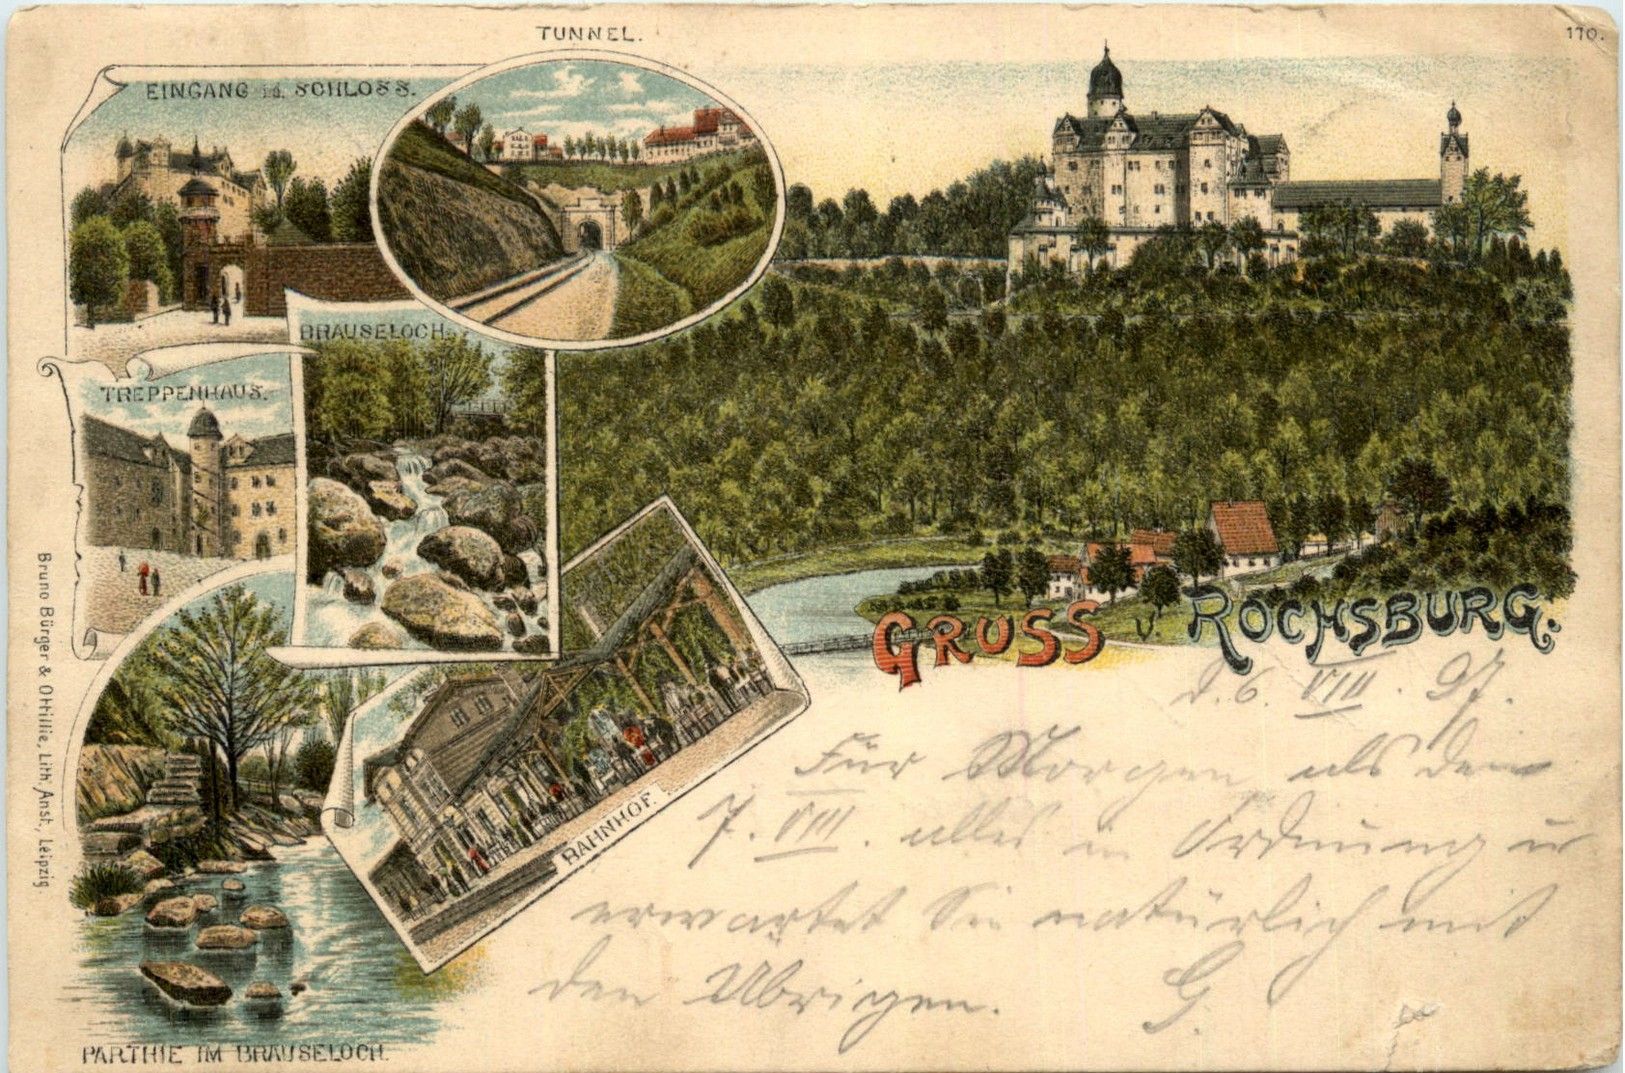 TUNNEL.
170.
EINGANG i.d. SCHLOSS.
BRAUSELOCH.
TREPPENHAUS.
GRUSS v. ROCHSBURG.
d. 6. VIII. 97.
Für Morgen als den
7. VIII. alles in Ordnung u
erwartet Sie natürlich mit
den Übrigen. G.
BAHNHOF.
PARTHIE IM BRAUSELOCH.
Bruno Bürger & Ottilie, Lith. Anst., Leipzig.